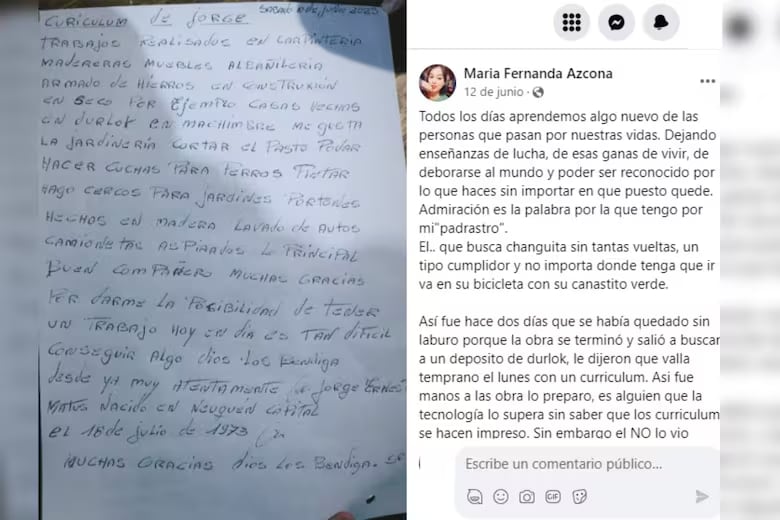 SABADO 10 DE JUNIO 2023
CURICULUM DE JORGE
TRABAJOS REALISADOS EN CARPINTERIA
MADERERAS MUEBLES ALBAÑILERIA
ARMADO DE HIERROS EN CONSTRUXIÓN
EN SECO POR EJEMPLO CASAS HECHAS
EN DURLOK EN MACHIMBRE ME GUSTA
LA JARDINERIA CORTAR EL PASTO PODAR
HACER CUCHAS PARA PERROS PINTAR
HAGO CERCOS PARA JARDINES PORTONES
HECHOS EN MADERA LAVADO DE AUTOS
CAMIONETAS ASPIRADOS LO PRINCIPAL
BUEN COMPAÑERO MUCHAS GRACIAS
POR DARME LA POSIBILIDAD DE TENER
UN TRABAJO HOY EN DIA ES TAN DIFICIL
CONSEGUIR ALGO DIOS LOS BENDIGA
DESDE YA MUY ATENTAMENTE JORGE ERNEST
MATUS NACIDO EN NEUQUÉN CAPITAL
EL 18 DE JULIO DE 1973
MUCHAS GRACIAS DIOS LOS BENDIGA.
Maria Fernanda Azcona
12 de junio
Todos los días aprendemos algo nuevo de las
personas que pasan por nuestras vidas. Dejando
enseñanzas de lucha, de esas ganas de vivir, de
deborarse al mundo y poder ser reconocido por
lo que haces sin importar en que puesto quede.
Admiración es la palabra por la que tengo por
mi"padrastro".
El.. que busca changuita sin tantas vueltas, un
tipo cumplidor y no importa donde tenga que ir
va en su bicicleta con su canastito verde.
Así fue hace dos días que se había quedado sin
laburo porque la obra se terminó y salió a buscar
a un deposito de durlok, le dijeron que valla
temprano el lunes con un curriculum. Asi fue
manos a las obra lo preparo, es alguien que la
tecnología lo supera sin saber que los curriculum
se hacen impreso. Sin embargo el NO lo vio
Escribe un comentario público...
GIF